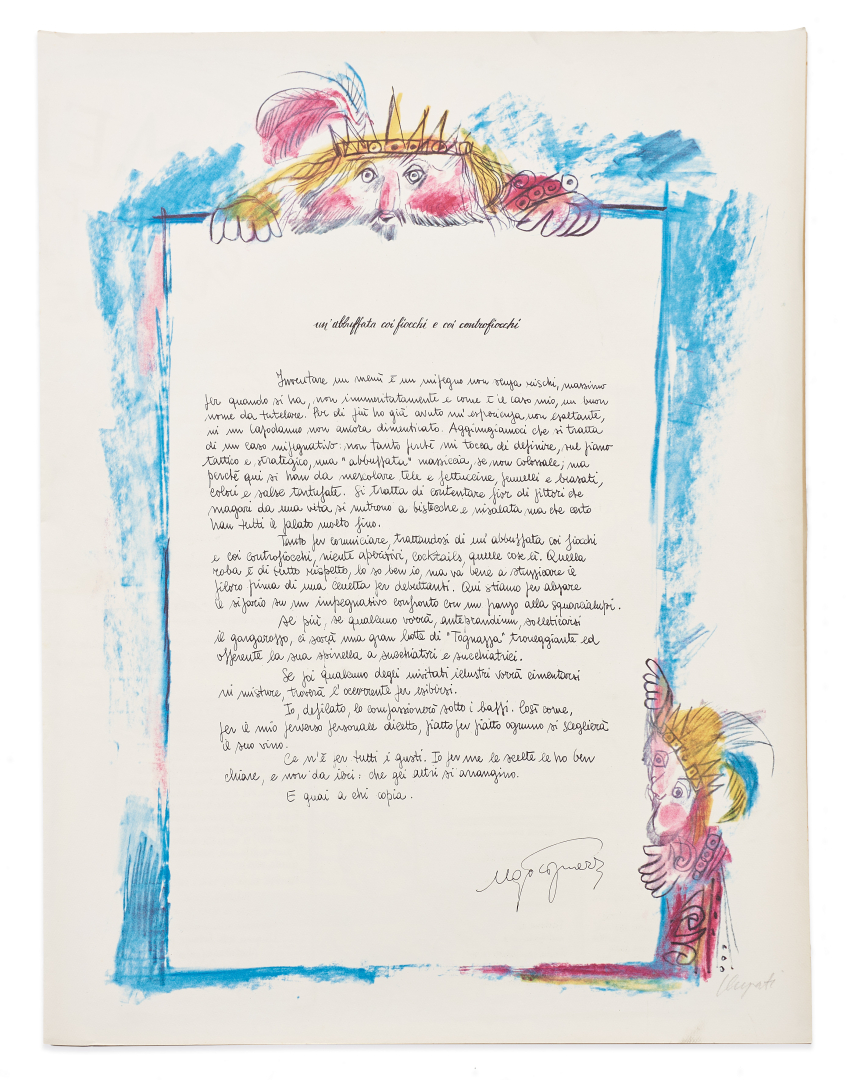 un'abbuffata coi fiocchi e coi controfiocchi
Inventare un menù è un impegno non senza rischi, massime
per quando si ha, non immeritatamente e come è il caso mio, un buon
nome da tutelare. Per di più ho già avuto un'esperienza, non esaltante,
in un Capodanno non ancora dimenticato. Aggiungiamoci che si tratta
di un caso impegnativo: non tanto perché mi tocca di definire, sul piano
tattico e strategico, una "abbuffata" massiccia, se non colossale; ma
perché qui si han da mescolare tele e fettuccine, pennelli e brasati,
colori e salse tartufate. Si tratta di contentare fior di pittori che
magari da una vita si nutrono a bistecche e insalata ma che certo
han tutti il palato molto fino.
Tanto per cominciare, trattandosi di un'abbuffata coi fiocchi
e coi controfiocchi, niente aperitivi, cocktails, quelle cose là. Quella
roba è di tutto rispetto, lo so ben io, ma va bene a stuzzicare il
piloro prima di una cenetta per debuttanti. Qui stiamo per alzare
il sipario su un impegnativo confronto con un pranzo alla squarcialupi.
Se più, se qualcuno vorrà, antebrandium, solleticarsi
il gargarozzo, ci sarà una gran botte di "Tognazza" troneggiante ed
offerente la sua spinella a succhiatori e succhiatrici.
Se poi qualcuno degli invitati illustri vorrà cimentarsi
in misture, troverà l'occorrente per esibirsi.
Io, defilato, lo compassionerò sotto i baffi. Così come,
per il mio perverso personale diletto, piatto per piatto ognuno si sceglierà
il suo vino.
Ce n'è per tutti i gusti. Io per me le scelte le ho ben
chiare, e non da ieri: che gli altri si arrangino.
E guai a chi copia.
Ugo Tognazzi